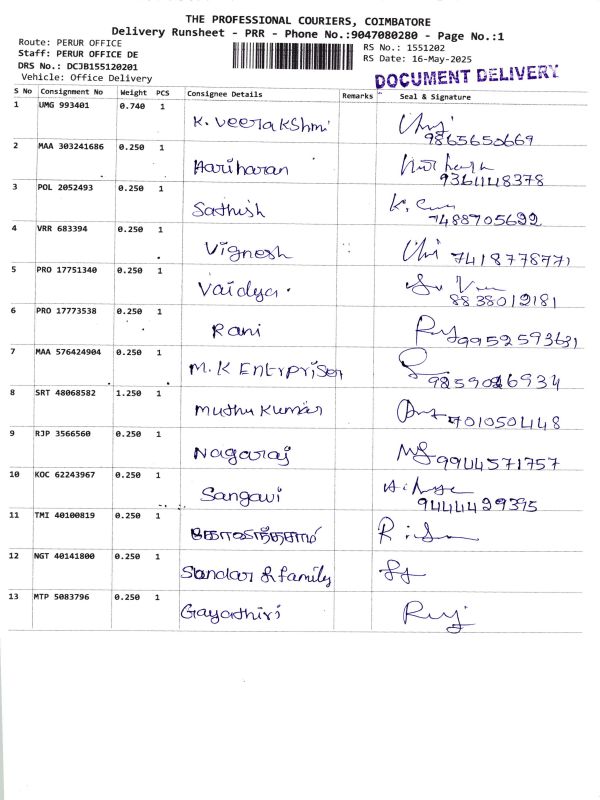 THE PROFESSIONAL COURIERS, COIMBATORE
Delivery Runsheet - PRR - Phone No.:9047080280 - Page No.:1
Route: PERUR OFFICE
Staff: PERUR OFFICE DE
DRS No.: DCJB155120201
Vehicle: Office Delivery
RS No.: 1551202
RS Date: 16-May-2025
DOCUMENT DELIVERY
S No Consignment No Weight PCS Consignee Details Remarks Seal & Signature
1 UMG 993401 0.740 1 K. Veerakshmi 9865650669
2 MAA 303241686 0.250 1 Hariharan 9361148378
3 POL 2052493 0.250 1 Sathish 7488705692
4 VRR 683394 0.250 1 Vignesh 7418778771
5 PRO 17751340 0.250 1 Vaidya. 8838012181
6 PRO 17773538 0.250 1 Rani 9952593631
7 MAA 576424904 0.250 1 M.K Entrpriser
8 SRT 48068582 1.250 1 Muthu Kumar 7010501148
9 RJP 3566560 0.250 1 Nagaraj 9944571757
10 KOC 62243967 0.250 1 Sangavi 9444429395
11 TMI 40100819 0.250 1
12 NGT 40141800 0.250 1 Sundar & family
13 MTP 5083796 0.250 1 Gayathiri